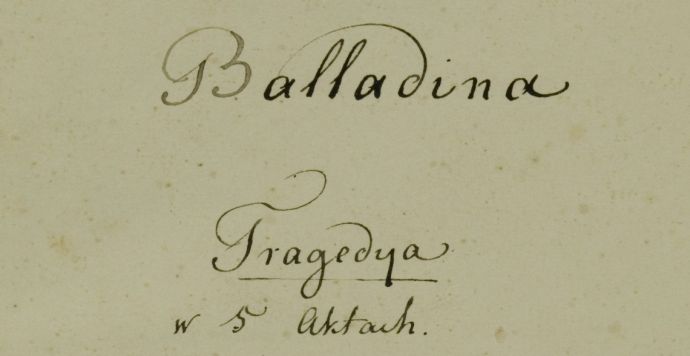 Balladina
Tragedya
w 5 Aktach.